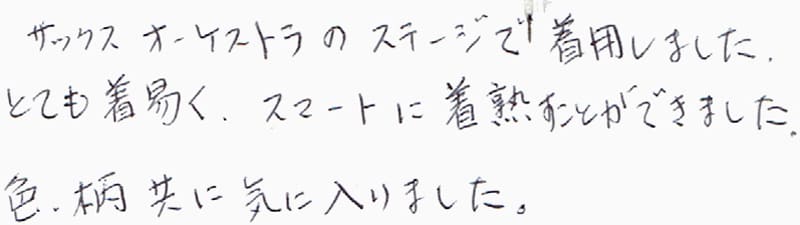 サックスオーケストラのステージで着用しました.
とても着易く.スマートに着熟すことができました.
色.柄共に気に入りました。